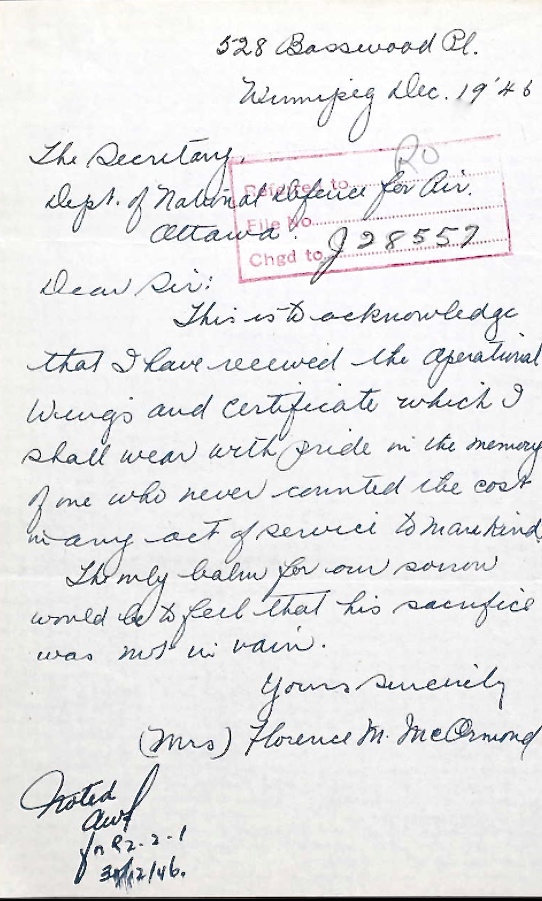 528 Basswood Pl.
Winnipeg Dec. 19 '46
The Secretary,
RO
Referred to
Dept. of National Defence for Air.
File No.
Ottawa.
Chgd to J 28557
Dear Sir:
This is to acknowledge
that I have received the operational
Wings and Certificate which I
shall wear with pride in the memory
of one who never counted the cost
in any act of service to mankind.
The only balm for our sorrow
would be to feel that his sacrifice
was not in vain.
Yours sincerely
(Mrs) Florence M. McOrmond
Noted
R2-2-1
/12/46.